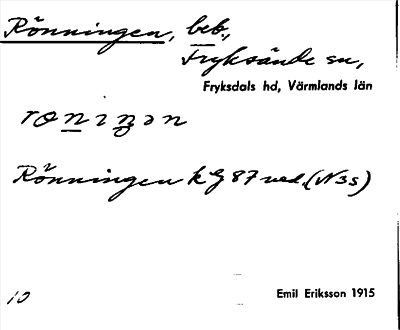 Rönningen, beb.,
Fryksände sn,
Fryksdals hd, Värmlands län
Rönningen kG 87 ned. (N3s)
10
Emil Eriksson 1915